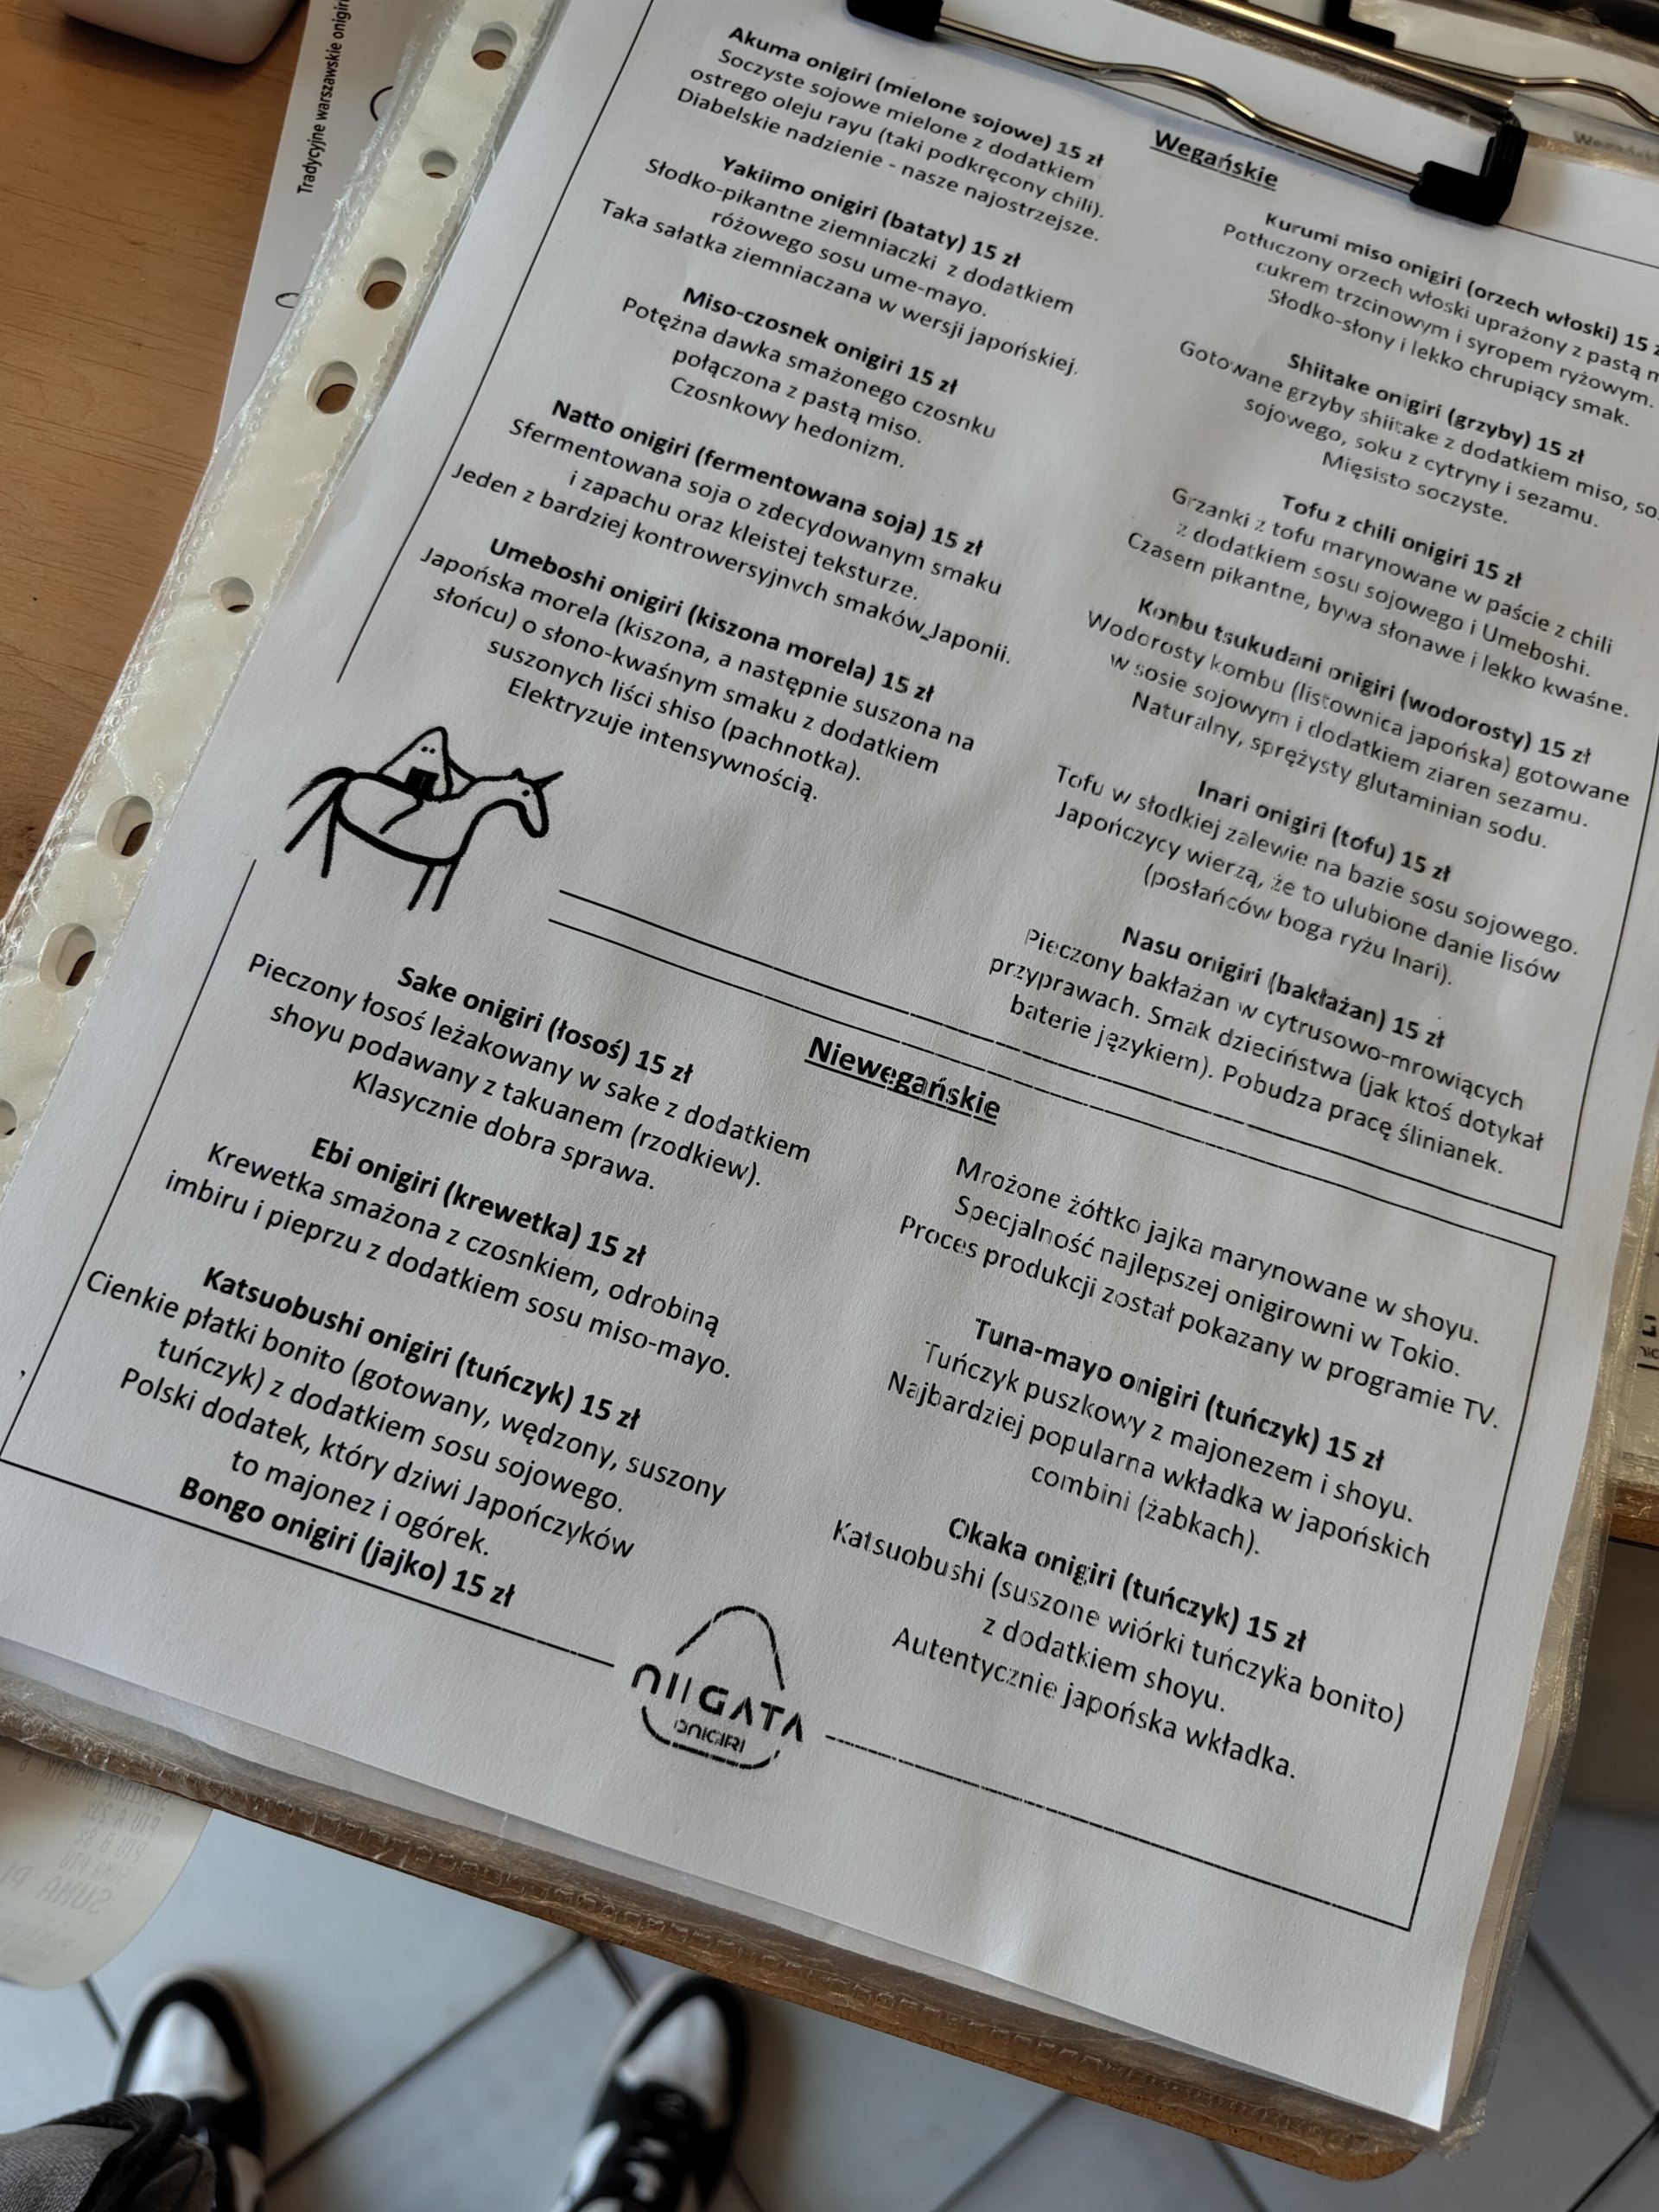 Tradycyjne warszawskie onigiri
Wegańskie
Akuma onigiri (mielone sojowe) 15 zł
Soczyste sojowe mielone z dodatkiem
ostrego oleju rayu (taki podkręcony chili).
Diabelskie nadzienie - nasze najostrzejsze.
Yakiimo onigiri (bataty) 15 zł
Słodko-pikantne ziemniaczki z dodatkiem
różowego sosu ume-mayo.
Taka sałatka ziemniaczana w wersji japońskiej.
Miso-czosnek onigiri 15 zł
Potężna dawka smażonego czosnku
połączona z pastą miso.
Czosnkowy hedonizm.
Natto onigiri (fermentowana soja) 15 zł
Sfermentowana soja o zdecydowanym smaku
i zapachu oraz kleistej teksturze.
Jeden z bardziej kontrowersyjnych smaków Japonii.
Umeboshi onigiri (kiszona morela) 15 zł
Japońska morela (kiszona, a następnie suszona na
słońcu) o słono-kwaśnym smaku z dodatkiem
suszonych liści shiso (pachnotka).
Elektryzuje intensywnością.
Kurumi miso onigiri (orzech włoski) 15
Potłuczony orzech włoski uprażony z pastą
cukrem trzcinowym i syropem ryżowym.
Słodko-słony i lekko chrupiący smak.
Shiitake onigiri (grzyby) 15 zł
Gotowane grzyby shiitake z dodatkiem miso,
sojowego, soku z cytryny i sezamu.
Mięsisto soczyste.
Tofu z chili onigiri 15 zł
Grzanki z tofu marynowane w paście z chili
z dodatkiem sosu sojowego i Umeboshi.
Czasem pikantne, bywa słonawe i lekko kwaśne.
Konbu tsukudani onigiri (wodorosty) 15 zł
Wodorosty kombu (listownica japońska) gotowane
w sosie sojowym i dodatkiem ziaren sezamu.
Naturalny, sprężysty glutaminian sodu.
Inari onigiri (tofu) 15 zł
Tofu w słodkiej zalewie na bazie sosu sojowego.
Japończycy wierzą, że to ulubione danie lisów
(posłańców boga ryżu Inari).
Nasu onigiri (bakłażan) 15 zł
Pieczony bakłażan w cytrusowo-mrowiących
przyprawach. Smak dzieciństwa (jak ktoś dotykał
baterie językiem). Pobudza pracę ślinianek.
Niewegańskie
Sake onigiri (łosoś) 15 zł
Pieczony łosoś leżakowany w sake z dodatkiem
shoyu podawany z takuanem (rzodkiew).
Klasycznie dobra sprawa.
Ebi onigiri (krewetka) 15 zł
Krewetka smażona z czosnkiem, odrobiną
imbiru i pieprzu z dodatkiem sosu miso-mayo.
Katsuobushi onigiri (tuńczyk) 15 zł
Cienkie płatki bonito (gotowany, wędzony, suszony
tuńczyk) z dodatkiem sosu sojowego.
Polski dodatek, który dziwi Japończyków
to majonez i ogórek.
Bongo onigiri (jajko) 15 zł
Mrożone żółtko jajka marynowane w shoyu.
Specjalność najlepszej onigirowni w Tokio.
Proces produkcji został pokazany w programie TV.
Tuna-mayo onigiri (tuńczyk) 15 zł
Tuńczyk puszkowy z majonezem i shoyu.
Najbardziej popularna wkładka w japońskich
combini (żabkach).
Okaka onigiri (tuńczyk) 15 zł
Katsuobushi (suszone wiórki tuńczyka bonito)
z dodatkiem shoyu.
Autentycznie japońska wkładka.
NIIGATA
ONIGIRI
PTU A 23%
PTU B 8%
SUMA PTU
SUMA PL